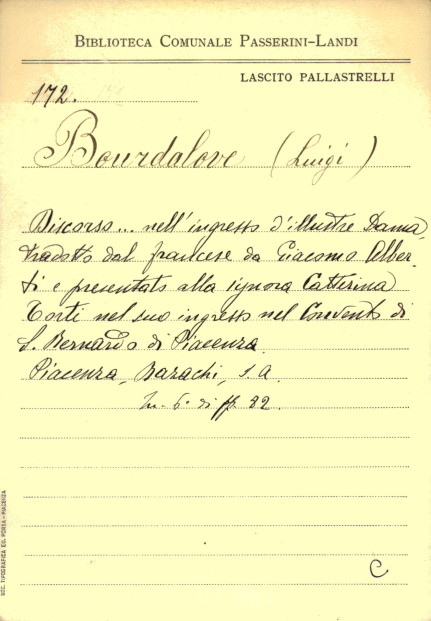 BIBLIOTECA COMUNALE PASSERINI-LANDI
LASCITO PALLASTRELLI
172.
Bourdalove (Luigi)
Discorso... nell'ingresso d'illustre Dama
tradotto dal francese da Giacomo Alber-
ti e presentato alla signora Catterina
Torti nel suo ingresso nel Convento di
S. Bernardo di Piacenza.
Piacenza, Barachi, s. a.
In-6° di ff. 32.
C
SOC. TIPOGRAFICA ED. PORTA - PIACENZA